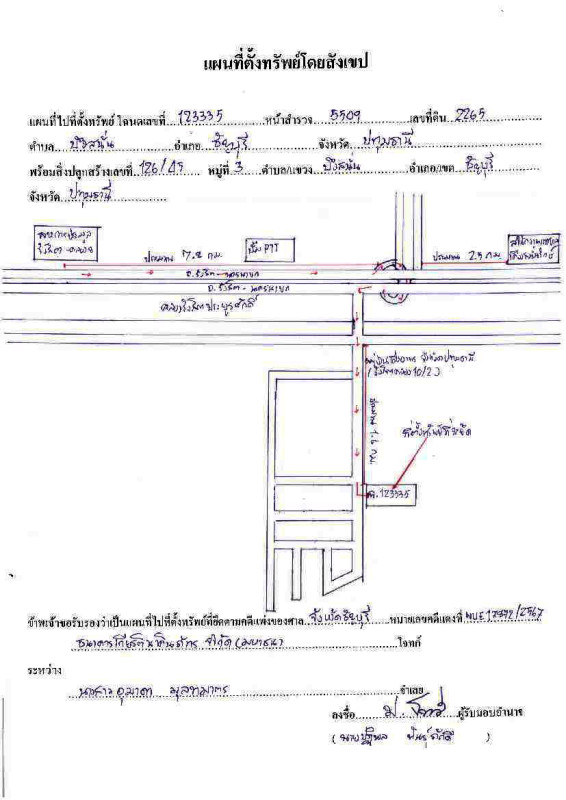 แผนที่ตั้งทรัพย์โดยสังเขป
แผนที่ไปที่ตั้งทรัพย์ โฉนดเลขที่ 123335 หน้าสำรวจ 5509 เลขที่ดิน 2265
ตำบล บึงสนั่น อำเภอ ธัญบุรี จังหวัด ปทุมธานี
พร้อมสิ่งปลูกสร้างเลขที่ 126/45 หมู่ที่ 3 ตำบล/แขวง บึงสนั่น อำเภอ/เขต ธัญบุรี
จังหวัด ปทุมธานี
ประมาณ 7.8 กม.
ปั๊ม PTT
ประมาณ 2.5 กม.
ถ.รังสิต - นครนายก
ถ.รังสิต - นครนายก
คลองรังสิตประยูรศักดิ์
(รังสิตคลอง 10/2)
ประมาณ 1.6 กม.
ที่ตั้งทรัพย์ที่จะยึด
ฉ.123335
ข้าพเจ้าขอรับรองว่าเป็นแผนที่ไปที่ตั้งทรัพย์ที่ยึดตามคดีแพ่งของศาล จังหวัดธัญบุรี หมายเลขคดีแดงที่
ธนาคารเกียรตินาคินภัทร จำกัด (มหาชน) โจทก์
ระหว่าง
นางสาว จำเลย
ลงชื่อ ผู้รับมอบอำนาจ